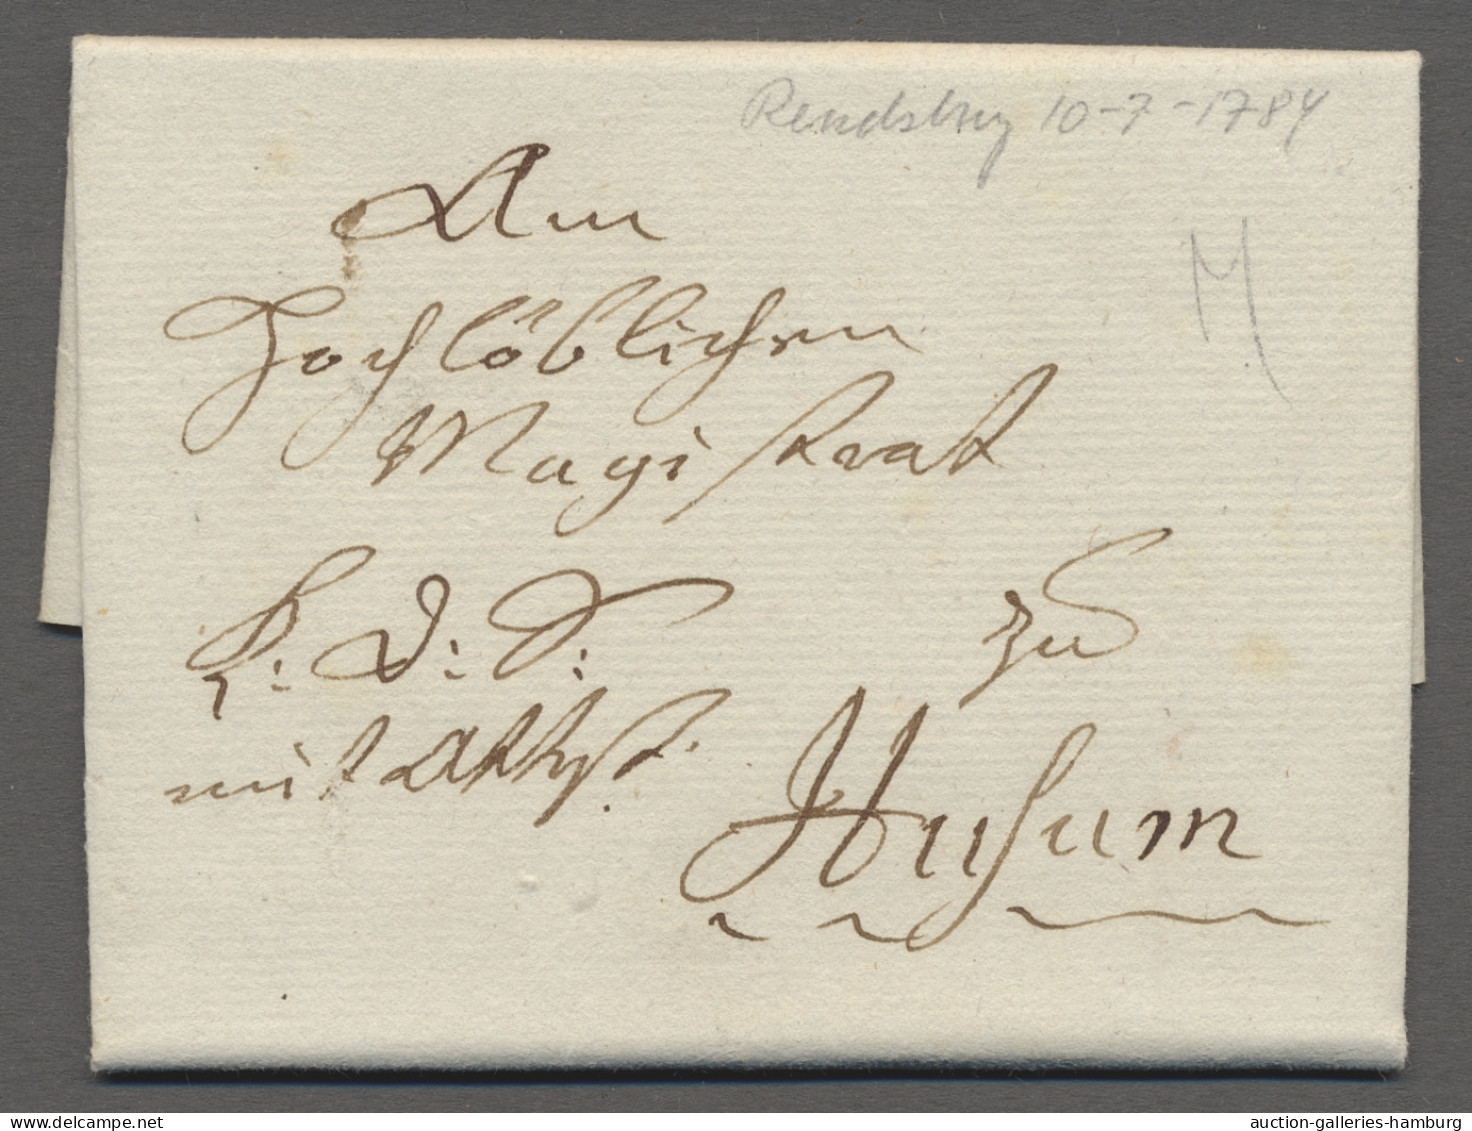 Rendsburg 10-7-1784
M
Am
Hochlöblichen
Magistrat
K: D: S:
zu
mit Attest.
Husum
www.delcampe.net
auction-galleries-hamburg